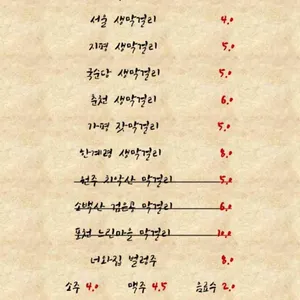 서울 생막걸리 4.0
지평 생막걸리 5.0
국순당 생막걸리 5.0
춘천 생막걸리 6.0
가평 잣막걸리 5.0
한계령 생막걸리 8.0
원주 치악산 막걸리 5.0
소백산 검은콩 막걸리 6.0
포천 느린마을 막걸리 10.0
너와집 벌렁주 8.0
소주 4.0 맥주 4.5 음료수 2.0